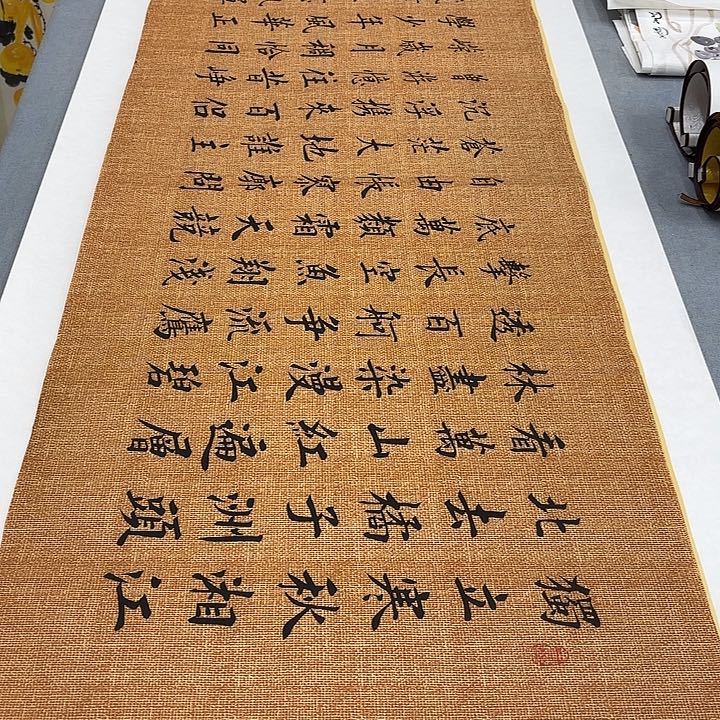 獨立寒秋湘江
北去橘子洲頭
看萬山紅遍層
林盡染漫江碧
透百舸争流鷹
擊長空魚翔淺
底萬類霜天競
自由悵寥廓問
蒼茫大地誰主
沉浮携来百侣
曾游憶往昔崢
嶸歲月稠恰同
學少年風華正